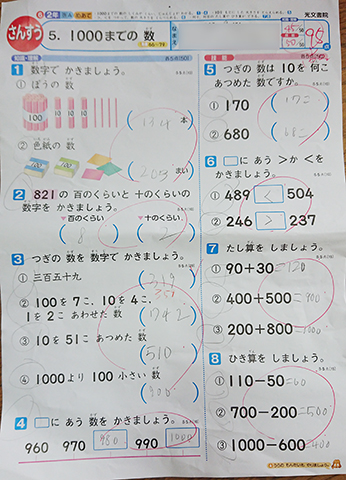 さんすう
2年
5. 1000までの 数
光文書院
95
1 数字で かきましょう。
① ぼうの 数
100
134 本
② 色紙の 数
203 まい
2 821の 百のくらいと 十のくらいの
数字を かきましょう。
百のくらい
十のくらい
8
2
3 つぎの 数を 数字で かきましょう。
① 三百五十九
359
② 100を 7こ、10を 4こ、
1を 2こ あわせた 数
742
③ 10を 51こ あつめた 数
510
④ 1000より 100 小さい 数
900
4 □に あう 数を かきましょう。
960 970 980 990 1000
5 つぎの 数は 10を 何こ
あつめた 数ですか。
① 170
17こ
② 680
68こ
6 □に あう >か <を
かきましょう。
① 489 < 504
② 246 > 237
7 たし算を しましょう。
① 90+30=120
② 400+500=900
③ 200+800=1000
8 ひき算を しましょう。
① 110-50=60
② 700-200=500
③ 1000-600=400